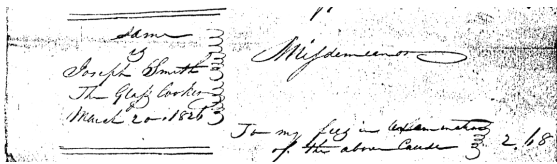 same
vs
Joseph Smith
The Glass Looker
March 20. 1826
Misdemeanor
To my fees in examination
of the above cause 2.68